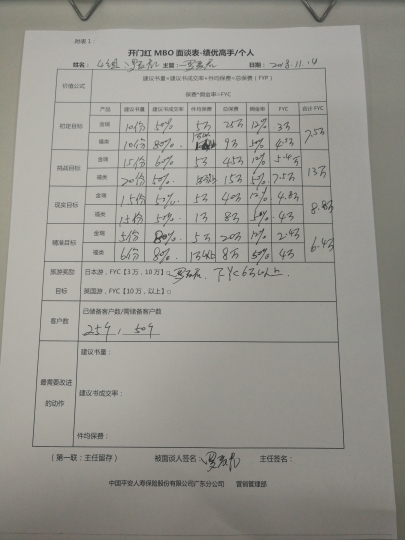 附表1：
开门红 MBO 面谈表-绩优高手/个人
姓名： 主管： 日期：2018.11.14
价值公式 建议书量×建议书成交率×件均保费=总保费（FYP）
保费*佣金率=FYC
产品 建议书量 建议书成交率 件均保费 总保费 佣金率 FYC 合计FYC
初定目标 金瑞 10份 50% 5万 25万 12% 3万 7.5万
福类 10份 80% 9万 50% 4.5万
挑战目标 金瑞 15份 60% 5万 45万 12% 5.4万 13万
福类 20份 50% 15万 50% 7.5万
现实目标 金瑞 15份 5万 40万 12% 4.8万 8.8万
福类 15份 50% 1万 8万 50% 4万
精准目标 金瑞 5份 80% 5万 20万 12% 2.4万 6.4万
福类 6份 80% 8万 50% 4万
旅游奖励目标 日本游，FYC【3万，10万】 FYC6万以上.
英国游，FYC【10万，以上】□
客户数 已储备客户数/需储备客户数
25个， 50个
最需要改进的动作 建议书量：
建议书成交率：
件均保费：
（第一联：主任留存） 被面谈人签名： 主任签名：
中国平安人寿保险股份有限公司广东分公司 营销管理部